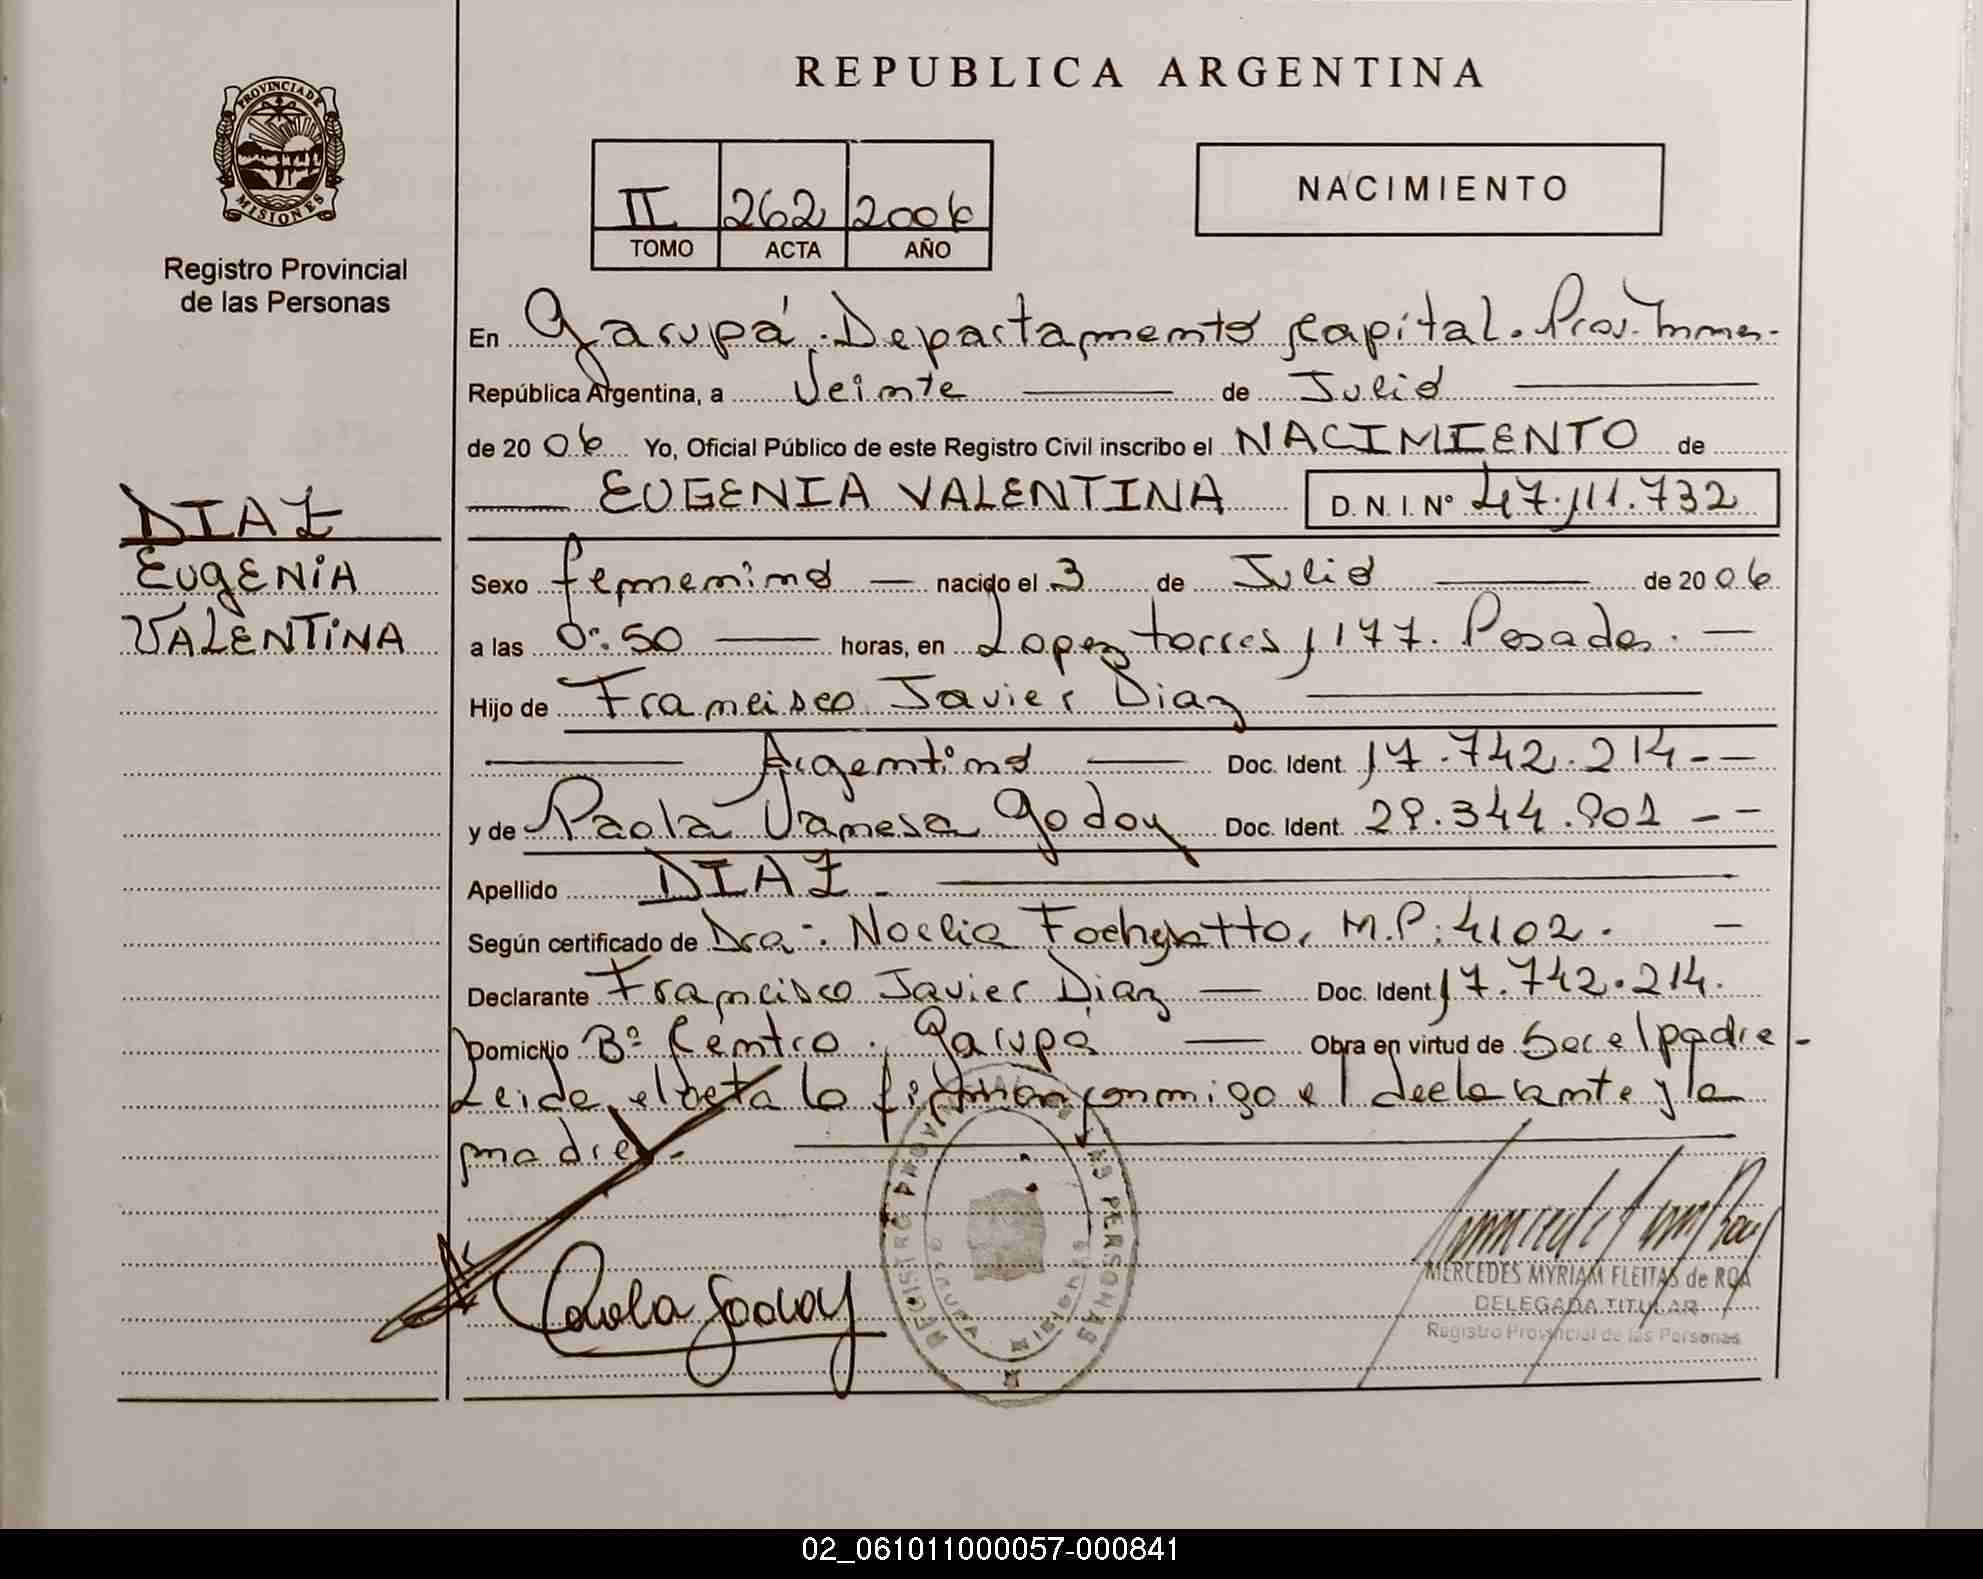 REPUBLICA ARGENTINA
PROVINCIA DE
MISIONES
Registro Provincial
de las Personas
II 262 2006
TOMO ACTA AÑO
NACIMIENTO
En Garupá. Departamento Capital. Prov. Mnes.
República Argentina, a Veinte de Julio
de 20 06 Yo, Oficial Público de este Registro Civil inscribo el NACIMIENTO de
EUGENIA VALENTINA D. N. I. Nº 47.111.732
DIAZ
EUGENIA
VALENTINA
Sexo femenino nacido el 3 de Julio de 20 06
a las 0:50 horas, en Lopez torres 1177. Posadas.
Hijo de Francisco Javier Diaz
Argentino Doc. Ident. 17.742.214 - -
y de Paola Vanesa Godoy Doc. Ident. 29.344.901 - -
Apellido DIAZ -
Según certificado de Dra. Noelia M.P: 4102.
Declarante Francisco Javier Diaz Doc. Ident. 17.742.214.
Domicilio Bº Centro. Garupá Obra en virtud de Ser el padre -
Leida el acta la firman conmigo el declarante y la
madre. -
Paola Godoy
REGISTRO PROVINCIAL DE LAS PERSONAS
GARUPA MISIONES
MERCEDES MYRIAM FLEITAS de ROA
DELEGADA TITULAR
Registro Provincial de las Personas
02_061011000057-000841